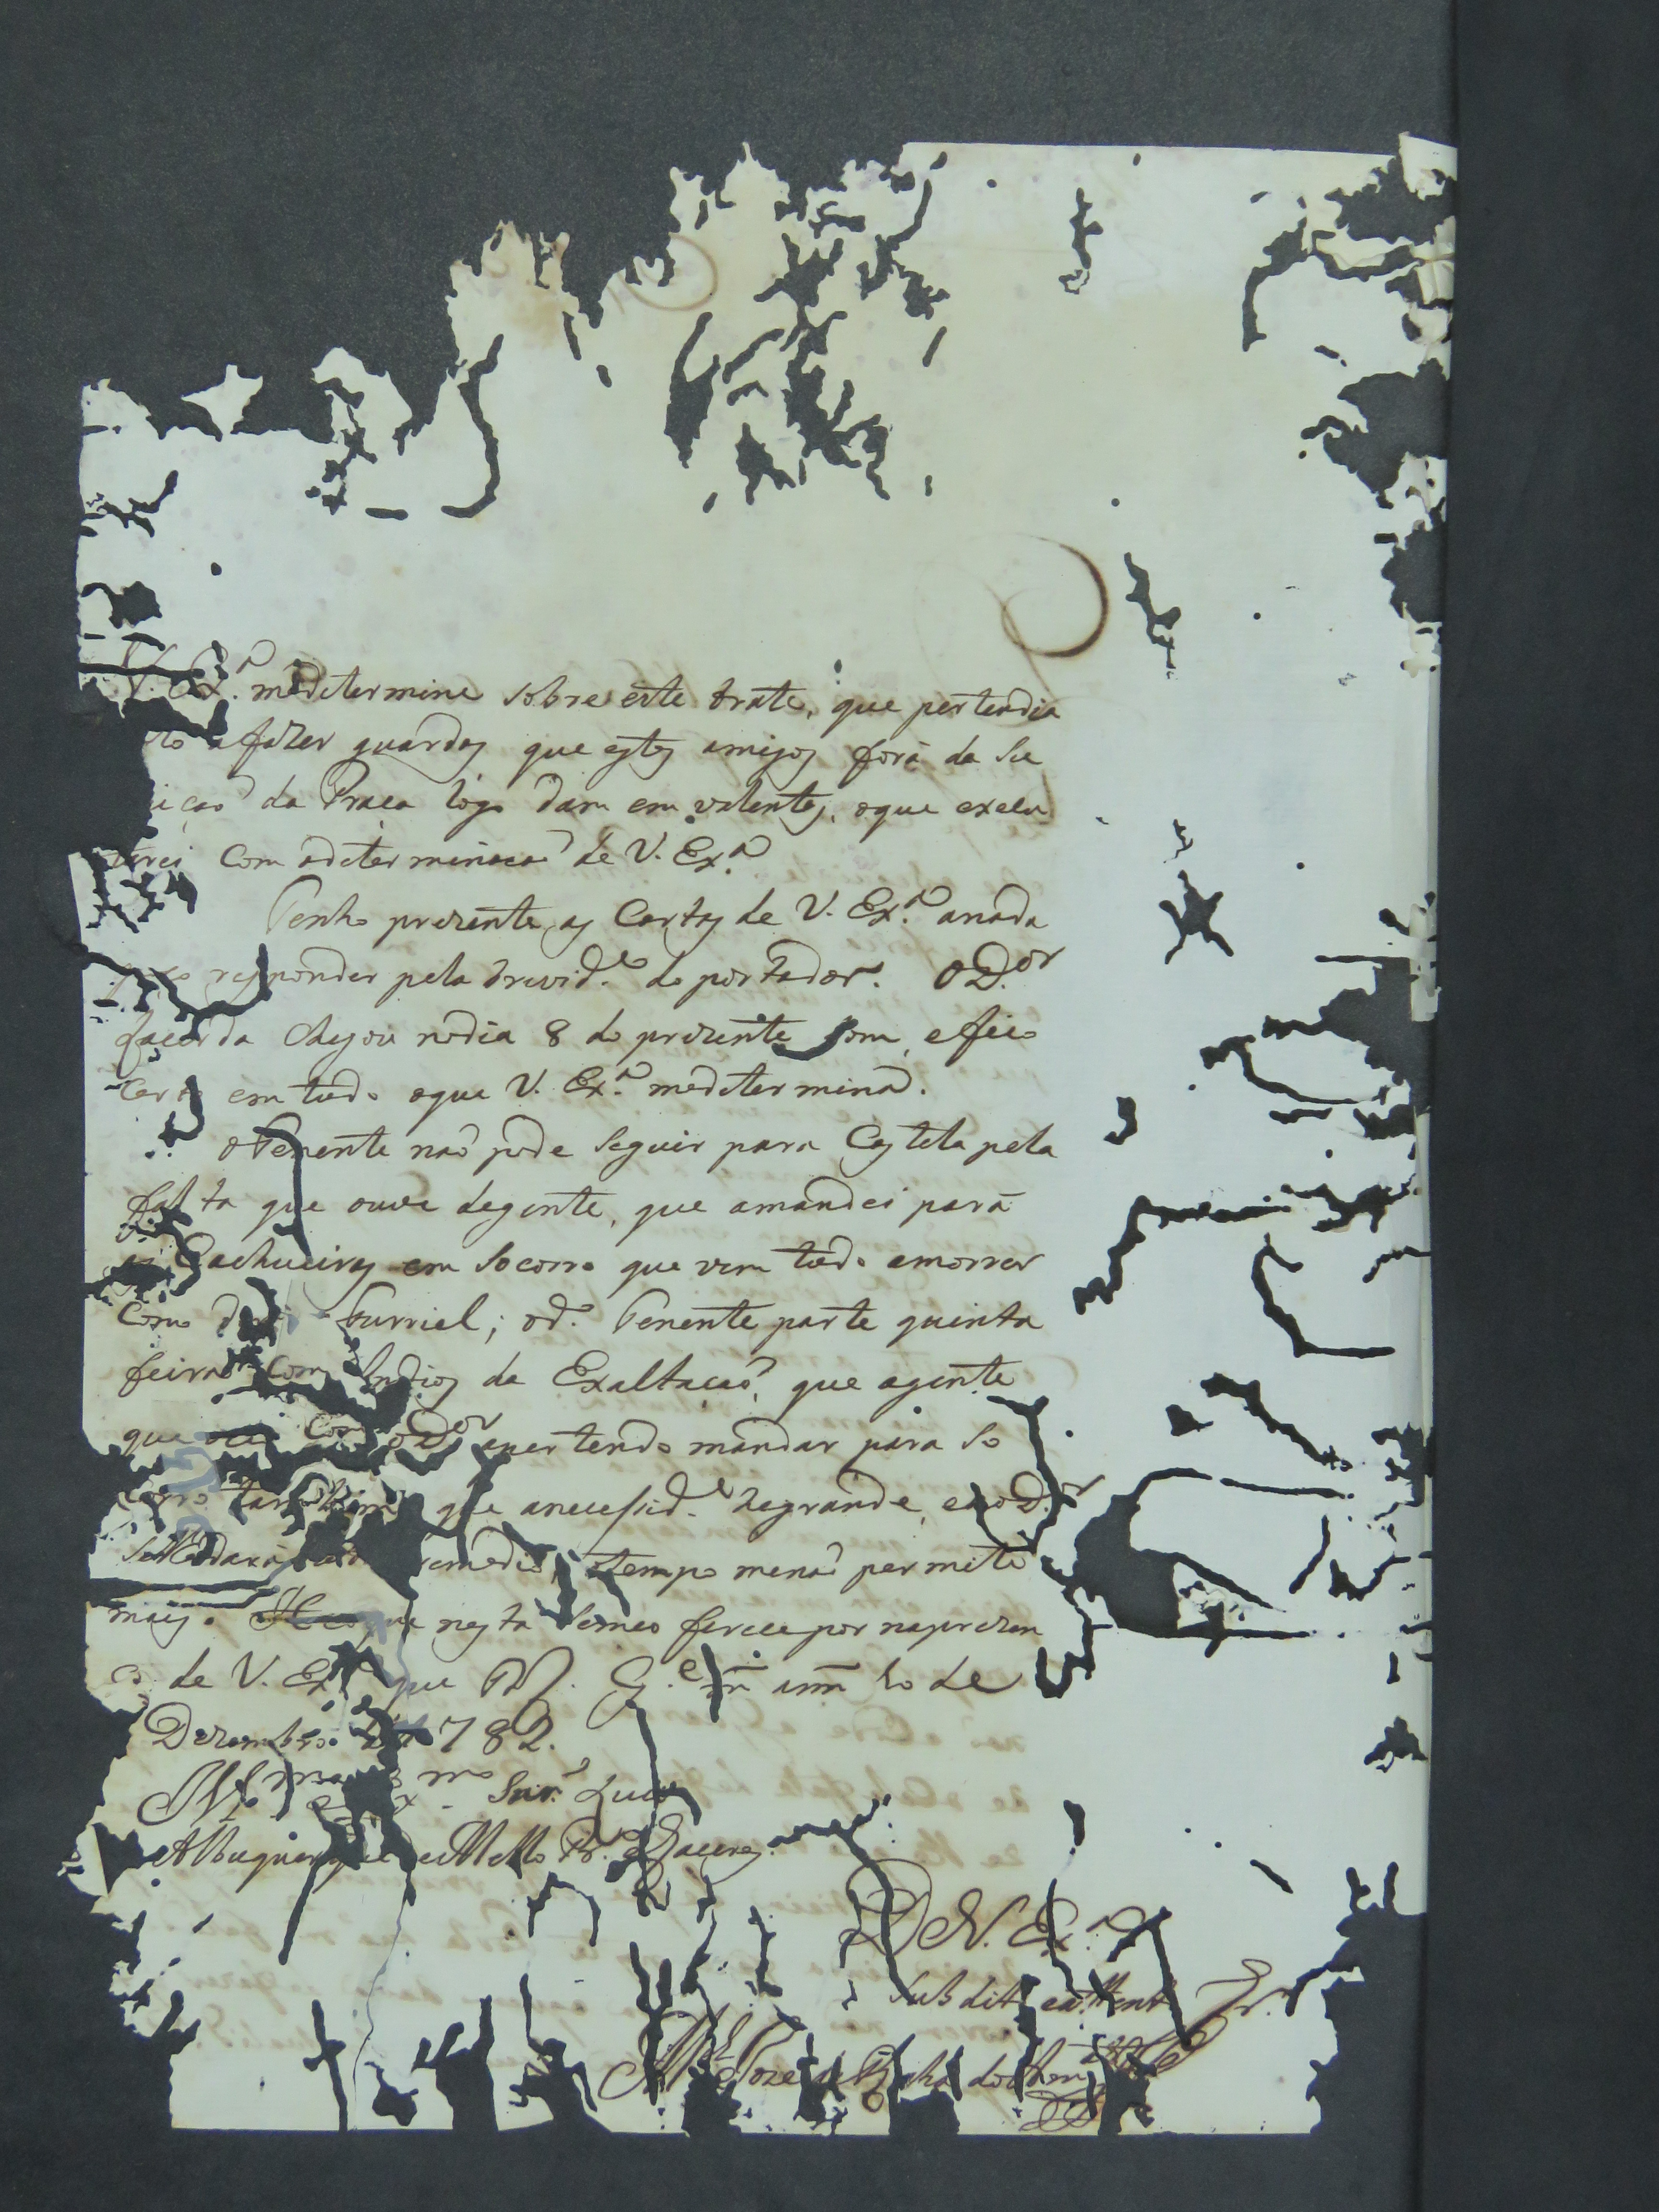 V. Ex.ª medetermine sobre este trate, que pertendia
afazer guardas que estes amigos fora da Su
icaõ da Praça logo dam em valentes, oque execu
tarei Com adeterminacaõ de V. Ex.ª
Tenho prezente as Cartas de V. Ex.ª anada
responder pela brevid.e do portador. OD.or
Lacerda chegou nodia 8 do prezente bom, efico
Certo em tudo oque V. Ex.ª medetermina.
oTenente naõ pode Seguir para Castela pela
falta que ouve degente, que amandei para
as Cachueiras em Socorro que vem tudo amorrer
Como Furriel; od.º Tenente parte quinta
feira Com Indios da Exaltacaõ, que agente
que Com oD.or apertendo mandar para So
corro tambem que anecessid.e hegrande, eaoD.or
remedio, otempo menaõ permite
mais. nesta Semeo ferece por naprezen
ca de V. Ex.ª que D.s G.e m. ann. 10 de
Dezembro de 1782.
Snr. Luis
Albuquerque deMello Pr.ª eCaceres.
DeV. Ex.ª
Subdito eattento
M.el Joze da Rocha